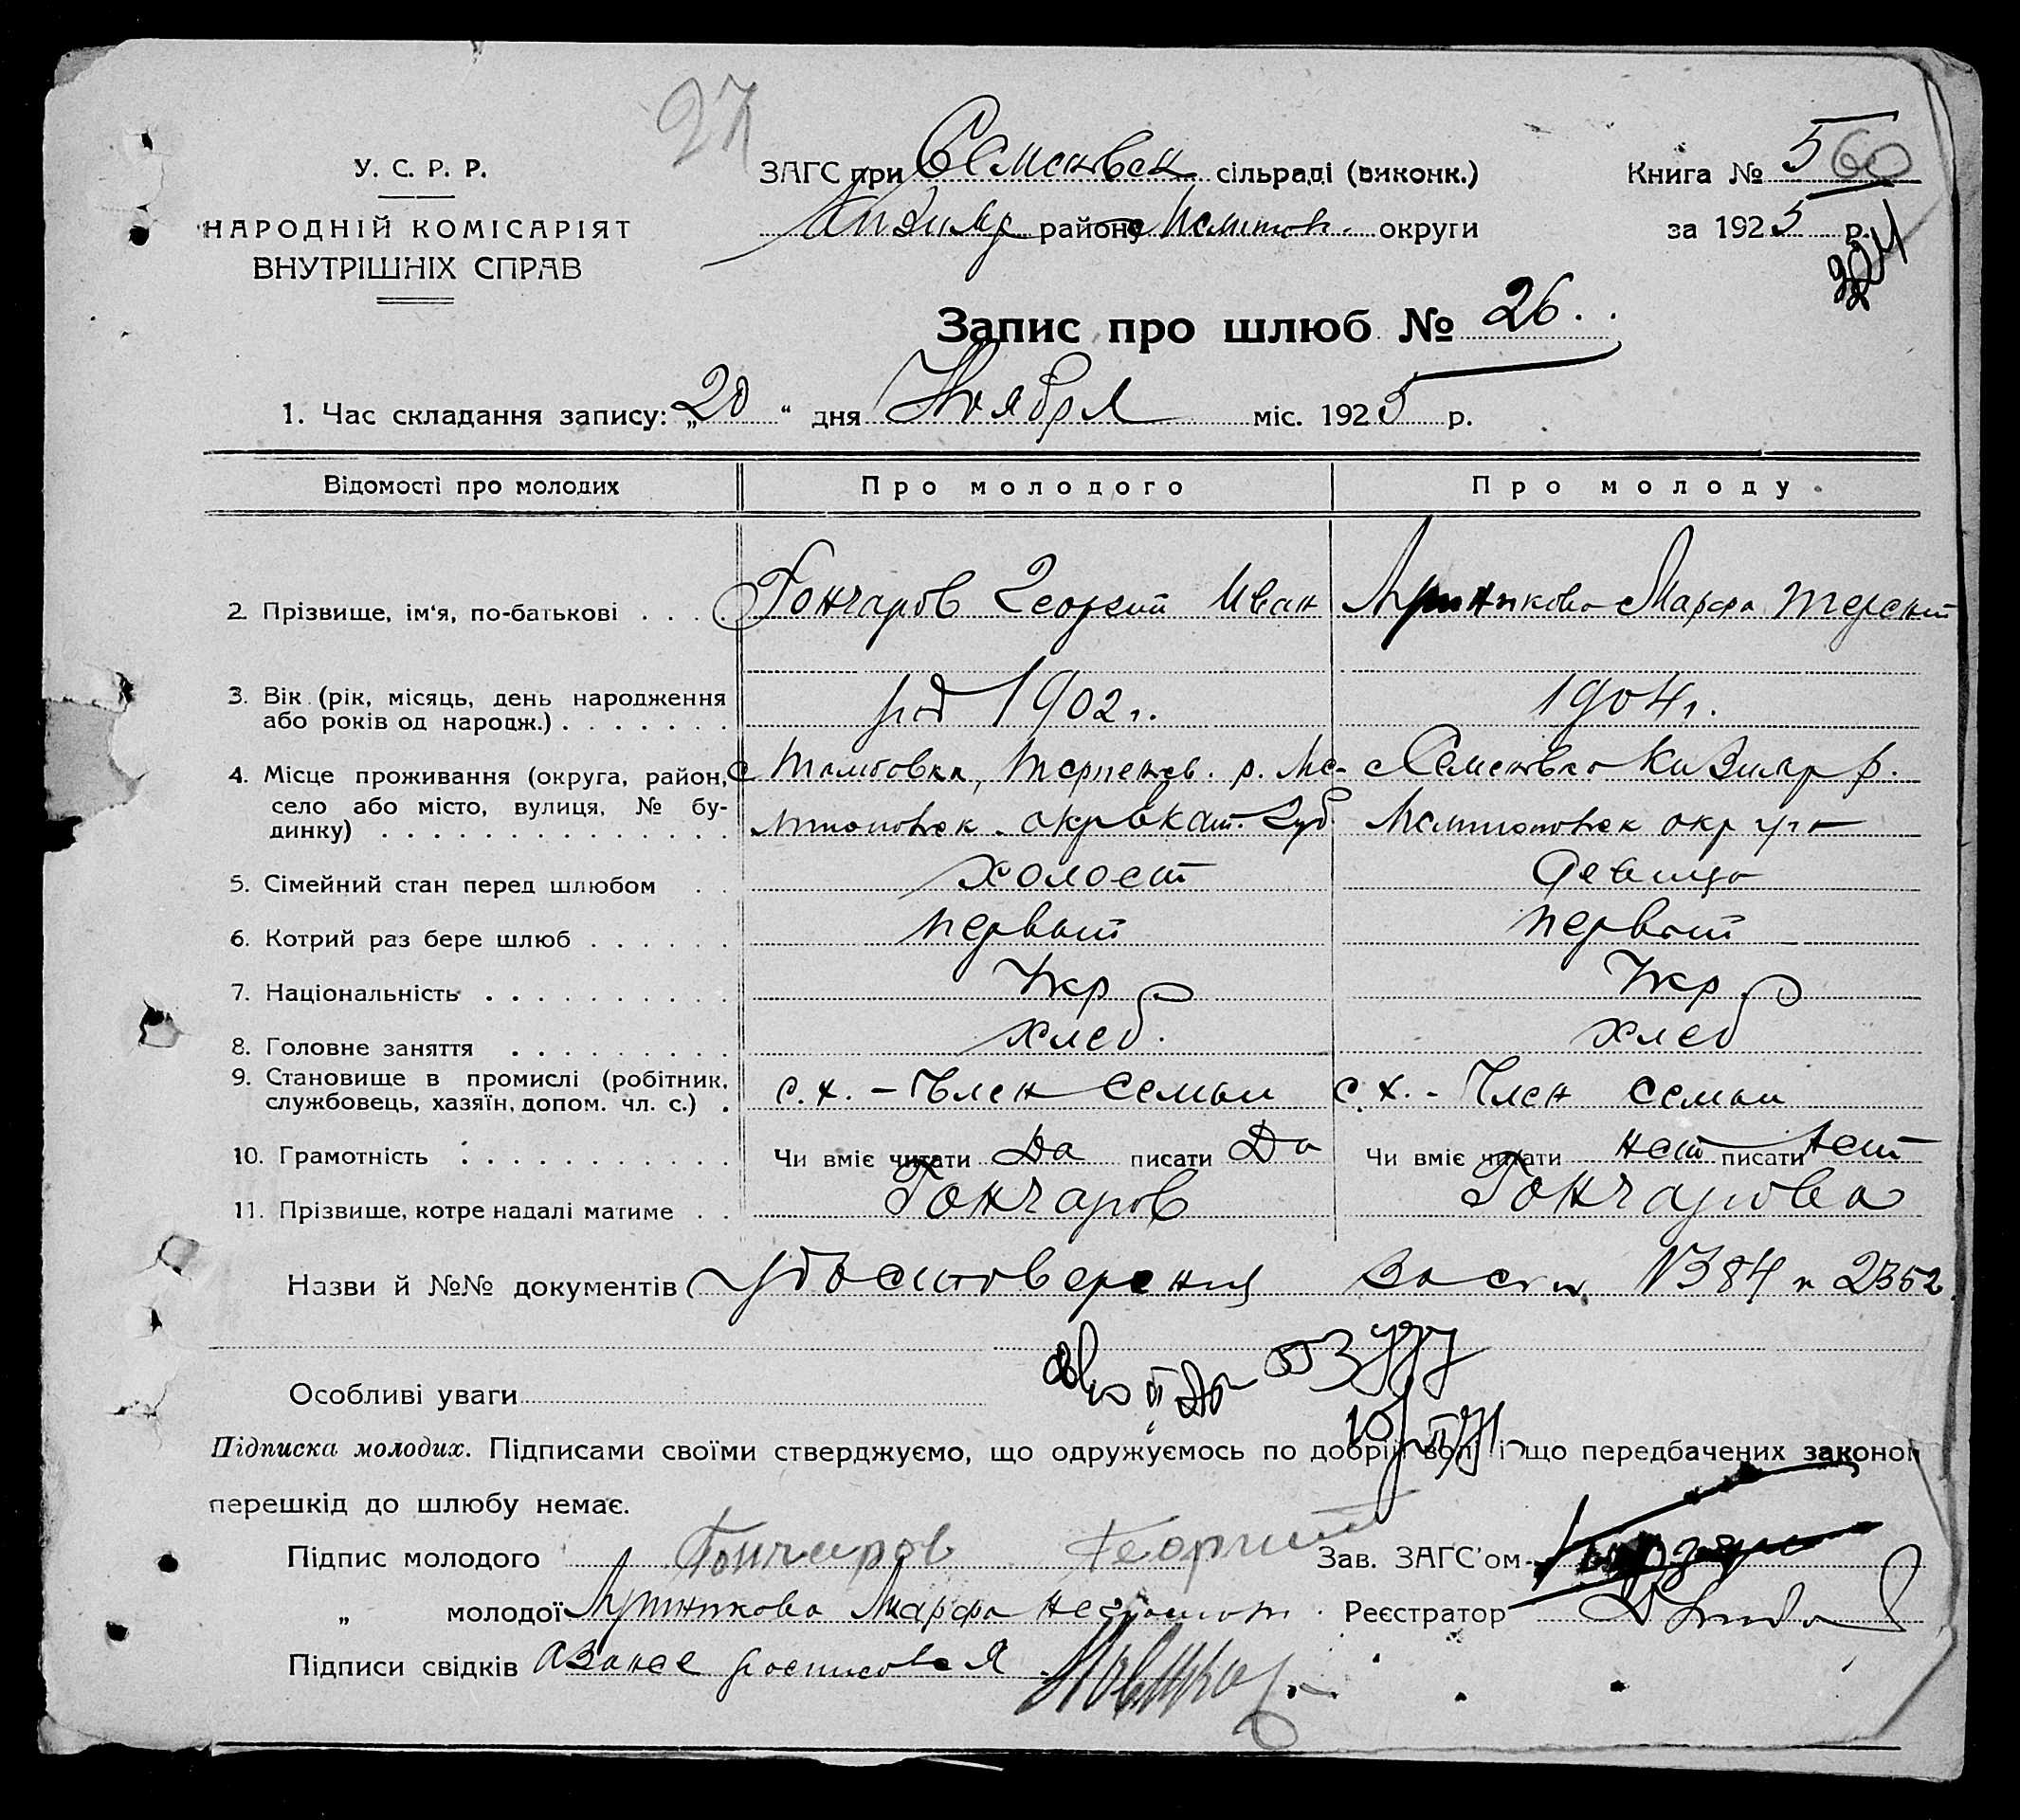 27
У. С. Р. Р.
НАРОДНІЙ КОМІСАРІЯТ
ВНУТРІШНІХ СПРАВ
ЗАГС при Семеновск сільраді (виконк.)
Кизияр району Мелитоп. округи
Книга № 5 60
за 1925 р.
Запис про шлюб № 26.
1. Час складання запису: „20“ дня Ноября міс. 1925 р.
Відомості про молодих Про молодого Про молоду
2. Прізвище, ім'я, по-батькові . . . . Гончаров Георгий Иван Лутникова Марфа Терент
3. Вік (рік, місяць, день народження або років од народж.) . . . . . . . род 1902 г. 1904 г.
4. Місце проживання (округа, район, с Тамбовка, Терпенев. р. Ме- с Семеновка Кизияр р.
село або місто, вулиця, № бу- литоповск. окр Екат. Губ. Мелитоповск окр
динку) . . . . . . . . . . . . . .
5. Сімейний стан перед шлюбом . . холост девица
6. Котрий раз бере шлюб . . . . . . первый первый
7. Національність . . . . . . . . . . Укр Укр
8. Головне заняття . . . . . . . . . хлеб. хлеб
9. Становище в промислі (робітник, службовець, хазяїн, допом. чл. с.) . с.х. - Член семьи с.х. - Член семьи
10. Грамотність . . . . . . . . . . . Чи вміє читати Да писати Да Чи вміє читати нет писати нет
11. Прізвище, котре надалі матиме . . Гончаров Гончарова
Назви й №№ документів Удостоверения за № 384 и 2352
Особливі уваги
Підписка молодих. Підписами своїми стверджуємо, що одружуємось по добрій волі і що передбачених законом
перешкід до шлюбу немає.
Підпис молодого Гончаров Георгий Зав. ЗАГС'ом
„ молодої Лутникова Марфа неграмот. Реєстратор
Підписи свідків а за нее росписовся